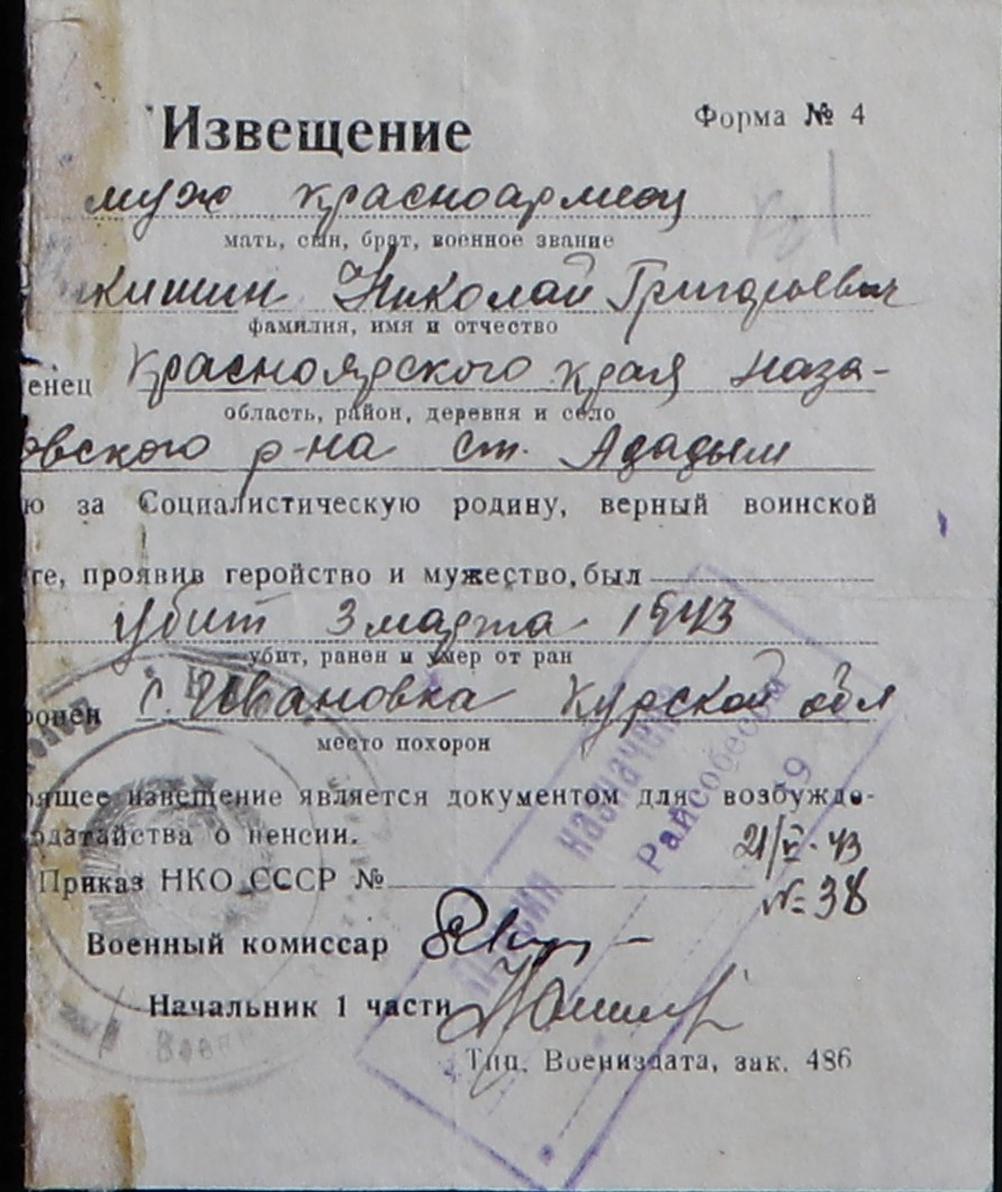 Извещение
Форма № 4
муж красноармеец
мать, сын, брат, военное звание
кишин Николай Григорьевич
фамилия, имя и отчество
енец Красноярского края Наза-
область, район, деревня и село
овского р-на ст. Ададым
ю за Социалистическую родину, верный воинской
ге, проявив геройство и мужество, был
убит 3 марта 1943
убит, ранен и умер от ран
ронен с. Ивановка Курской обл
место похорон
ящее извещение является документом для возбужде-
одатайства о пенсии.
21/V-43
Приказ НКО СССР №
№ 38
Военный комиссар
Начальник 1 части
Тип. Воениздата, зак. 486
Пенсия назначена
Райсобесом